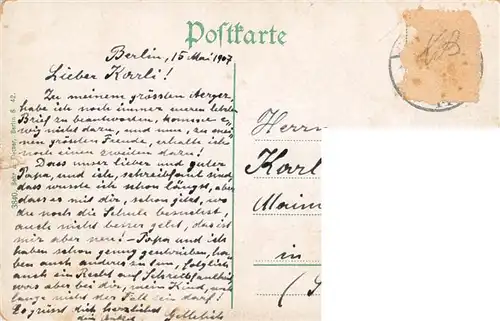 Postkarte
Berlin, 15 Mai 1907
Lieber Karli!
Zu meinem grössten Aerger
habe ich noch immer deinen letzten
Brief zu beantworten, komme e-
wig nicht dazu, und nun, zu mei-
nen grössten Freude, erhalte ich
noch einen zweiten dazu!
Dass unser lieber und guter
Papa, und ich, schreibfaul sind
das wusste ich schon längst, aber
dass es mit dir, schon jetzt, wo
du noch die Schule besuchst,
auch nicht besser geht, das ist
mir aber neu! - Papa und ich
haben schon genug geschrieben, ha-
ben auch anderes zu tun, folglich
auch ein Recht auf Schreibfaulheit
was aber bei dir, mein Kind, noch
lange nicht der Fall sein darf!
Es grüsst dich herzlichst
dein Gottlieb
Herrn
Karl
in